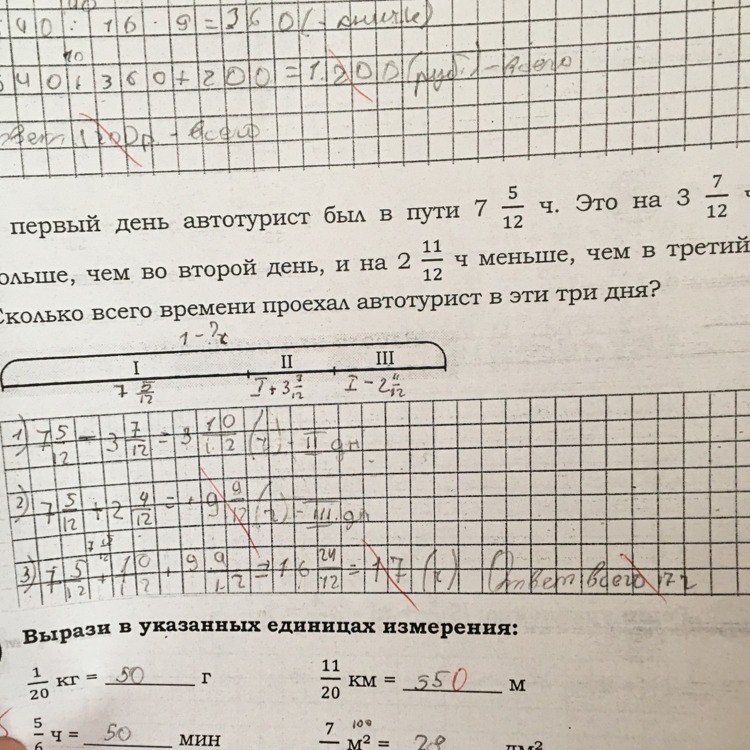 40 : 16 · 9 = 360 (
40 + 360 + 200 = 1200 (руб.) - всего
1200р - всего
первый день автотурист был в пути 7 5/12 ч. Это на 3 7/12
больше, чем во второй день, и на 2 11/12 ч меньше, чем в третий
Сколько всего времени проехал автотурист в эти три дня?
1 - ?ч
I II III
7 5/12 I + 3 7/12 I - 2 4/12
1) 7 5/12 - 3 7/12 = 3 10/12 (ч) - II дн
2) 7 5/12 + 2 4/12 = 9 9/12 (ч) - III дн
3) 7 5/12 + 10/12 + 9 9/12 = 16 24/12 = 17 (ч) Ответ: всего 17ч
Вырази в указанных единицах измерения:
1/20 кг = 50 г 11/20 км = 550 м
5/6 ч = 50 мин 7/ м² = 28 дм²
100